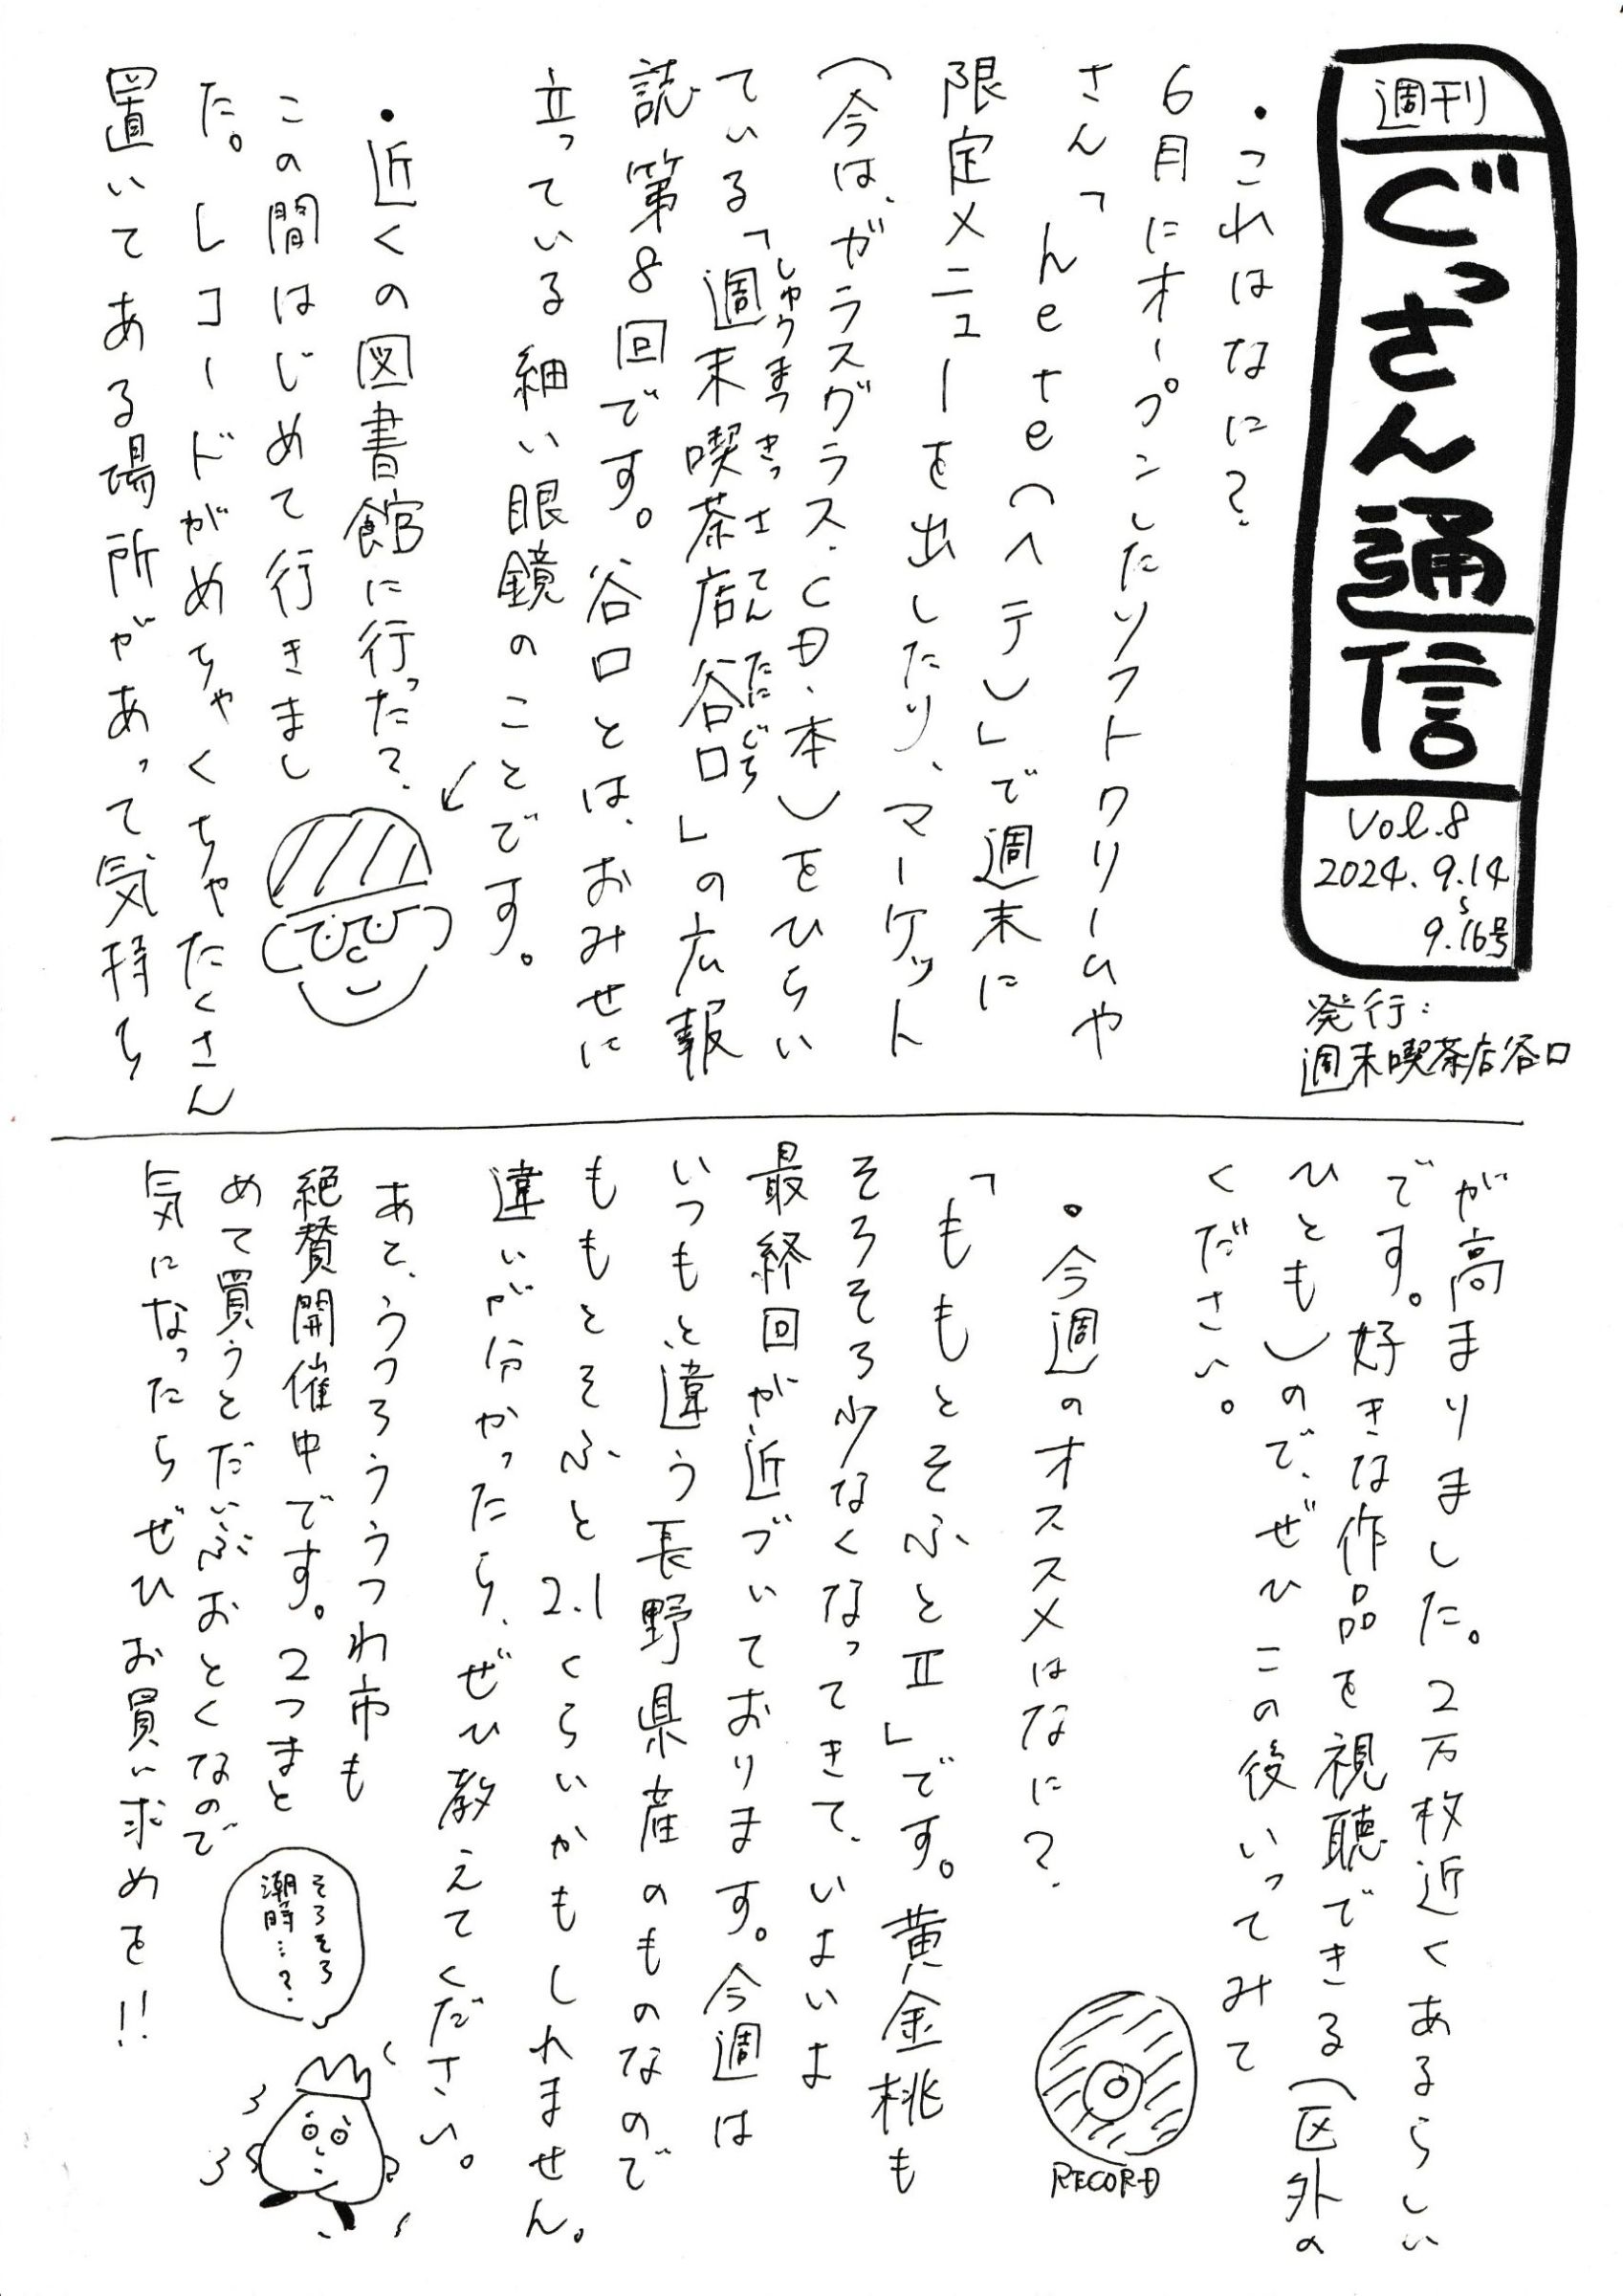 週刊
ぐっさん通信
Vol.8
2024.9.14
〜
9.16号
発行：
週末喫茶店谷口
・これはなに？
6月にオープンしたソフトクリームや
さん「hete(ヘテ)」で週末に
限定メニューを出したり、マーケット
(今は、ガラスグラス・CD・本)をひらい
ている「週末喫茶店谷口」の広報
しゅうまつきっさてんたにぐち
誌第8回です。谷口とは、おみせに
立っている細い眼鏡のことです。
・近くの図書館に行った？
この間はじめて行きまし
た。レコードがめちゃくちゃたくさん
置いてある場所があって気持ち
が高まりました。2万枚近くあるらしい
です。好きな作品を視聴できる(区外の
ひとも)ので、ぜひこの後いってみて
ください。
RECORD
・今週のオススメはなに？
「ももとそふとⅡ」です。黄金桃も
そろそろ少なくなってきて、いよいよ
最終回が近づいております。今週は
いつもと違う長野県産のものなので
ももとそふと2.1くらいかもしれません。
違いが分かったら、ぜひ教えてください。
あと、うつろううつわ市も
絶賛開催中です。2つまと
めて買うとだいぶおとくなので
気になったらぜひお買い求めを!!
そろそろ
潮時…？